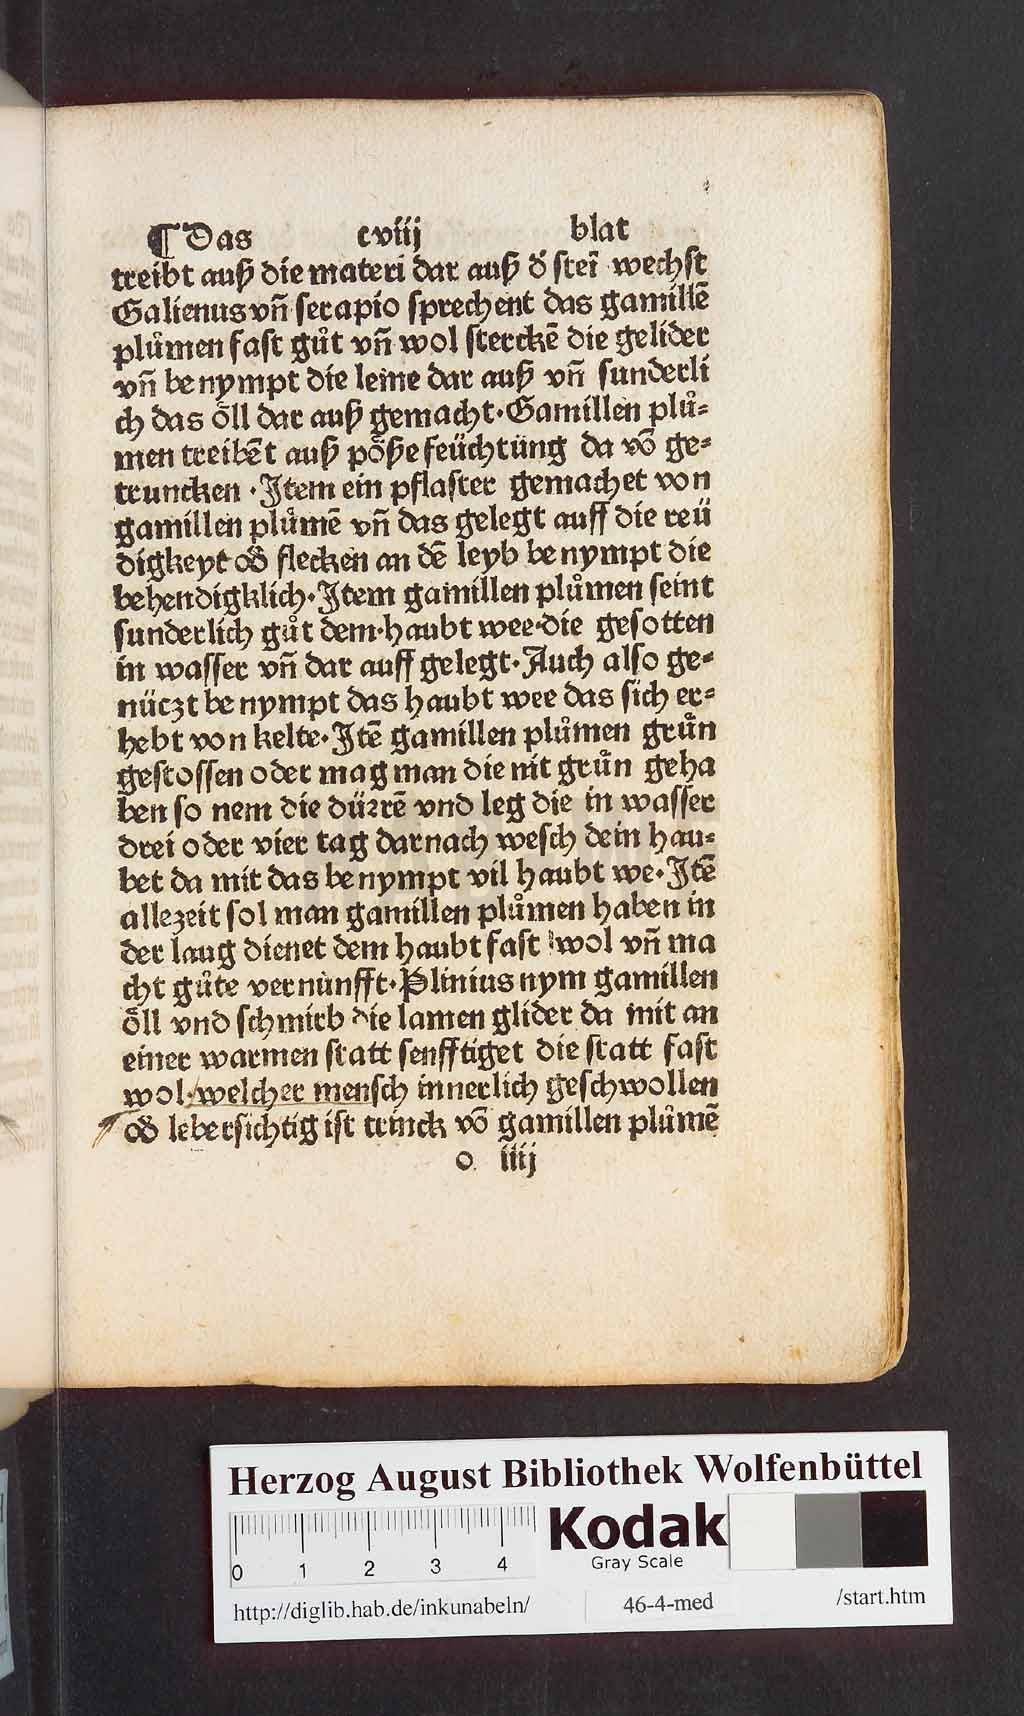 ¶ Das cviij blat
treibt auß die materi dar auß d̕ stei᷑ wechst
Galienus vn̄ serapio sprechent das gamillē
plůmen fast gůt vn̄ wol sterckē die gelider
vn̄ benympt die leme dar auß vn̄ sunderli
ch das oͤll dar auß gemacht·Gamillen plů⸗
men treibēt auß poͤße feüchtüng da vō ge⸗
truncken ·Item ein pflaster gemachet von
gamillen plůmē vn̄ das gelegt auff die reü
digkeyt od̕ flecken an dē leyb benympt die
behendigklich·Item gamillen plůmen seint
sunderlich gůt dem·haubt wee·die gesotten
in wasser vn̄ dar auff gelegt·Auch also ge⸗
nüczt benympt das haubt wee das sich er⸗
hebt von kelte·Itē gamillen plůmen grůn
gestossen oder mag man die nit grůn geha
ben so nem die düꝛrē vnd leg die in wasser
drei oder vier tag darnach wesch dein hau⸗
bet da mit das benympt vil haubt we·Itē
allezeit sol man gamillen plůmen haben in
der laug dienet dem haubt fast wol vn̄ ma
cht gůte vernunfft·Plinius nym gamillen
oͤll vnd schmirb die lamen glider da mit an
einer warmen statt senfftiget die statt fast
wol·welcher mensch innerlich geschwollen
od̕ lebersichtig ist trinck vō gamillen plůmē
o iiij
Herzog August Bibliothek Wolfenbüttel
0 1 2 3 4
Kodak
Gray Scale
http://diglib.hab.de/inkunabeln/ 46-4-med /start.htm